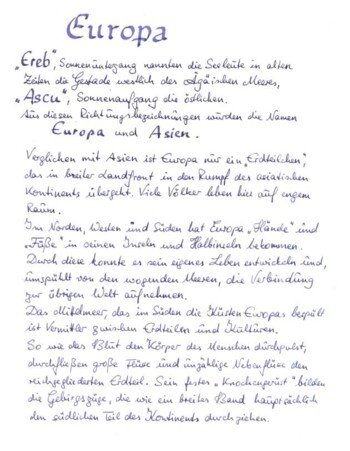 Europa
„Ereb“, Sonnenuntergang nannten die Seeleute in alten
Zeiten die Gestade westlich des Ägäischen Meeres,
„Ascu“, Sonnenaufgang die östlichen.
Aus diesen Richtungsbezeichnungen wurden die Namen
Europa und Asien.
Verglichen mit Asien ist Europa nur ein „Erdteilchen“,
das in breiter Landfront in den Rumpf des asiatischen
Kontinents übergeht. Viele Völker leben hier auf engem
Raum.
Im Norden, Westen und Süden hat Europa „Hände“ und
„Füße“ in seinen Inseln und Halbinseln bekommen.
Durch diese konnte es sein eigenes Leben entwickeln und,
umspült von den wogenden Meeren, die Verbindung
zur übrigen Welt aufnehmen.
Das Mittelmeer, das im Süden die Küsten Europas bespült
ist Vermittler zwischen Erdteilen und Kulturen.
So wie das Blut den Körper des Menschen durchpulst,
durchfließen große Flüsse und unzählige Nebenflüsse den
reichgegliederten Erdteil. Sein festes „Knochengerüst“ bilden
die Gebirgszüge, die wie ein breites Band hauptsächlich
den südlichen Teil des Kontinents durchziehen.